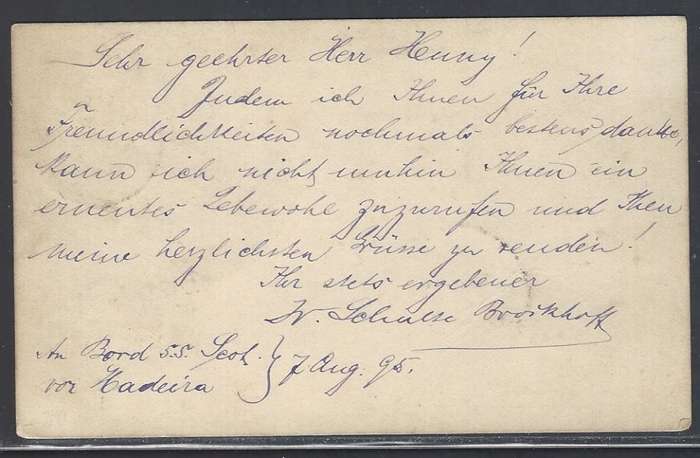 Sehr geehrter Herr Henny!
Indem ich Ihnen für Ihre
Freundlichkeiten nochmals bestens danke,
kann ich nicht umhin Ihnen ein
erneutes Lebewohl zuzurufen und Ihnen
meine herzlichsten Grüsse zu senden!
Ihr stets ergebener
Schulze Brockhoff
An Bord S.S. Scot.
vor Madeira } 7 Aug. 95.